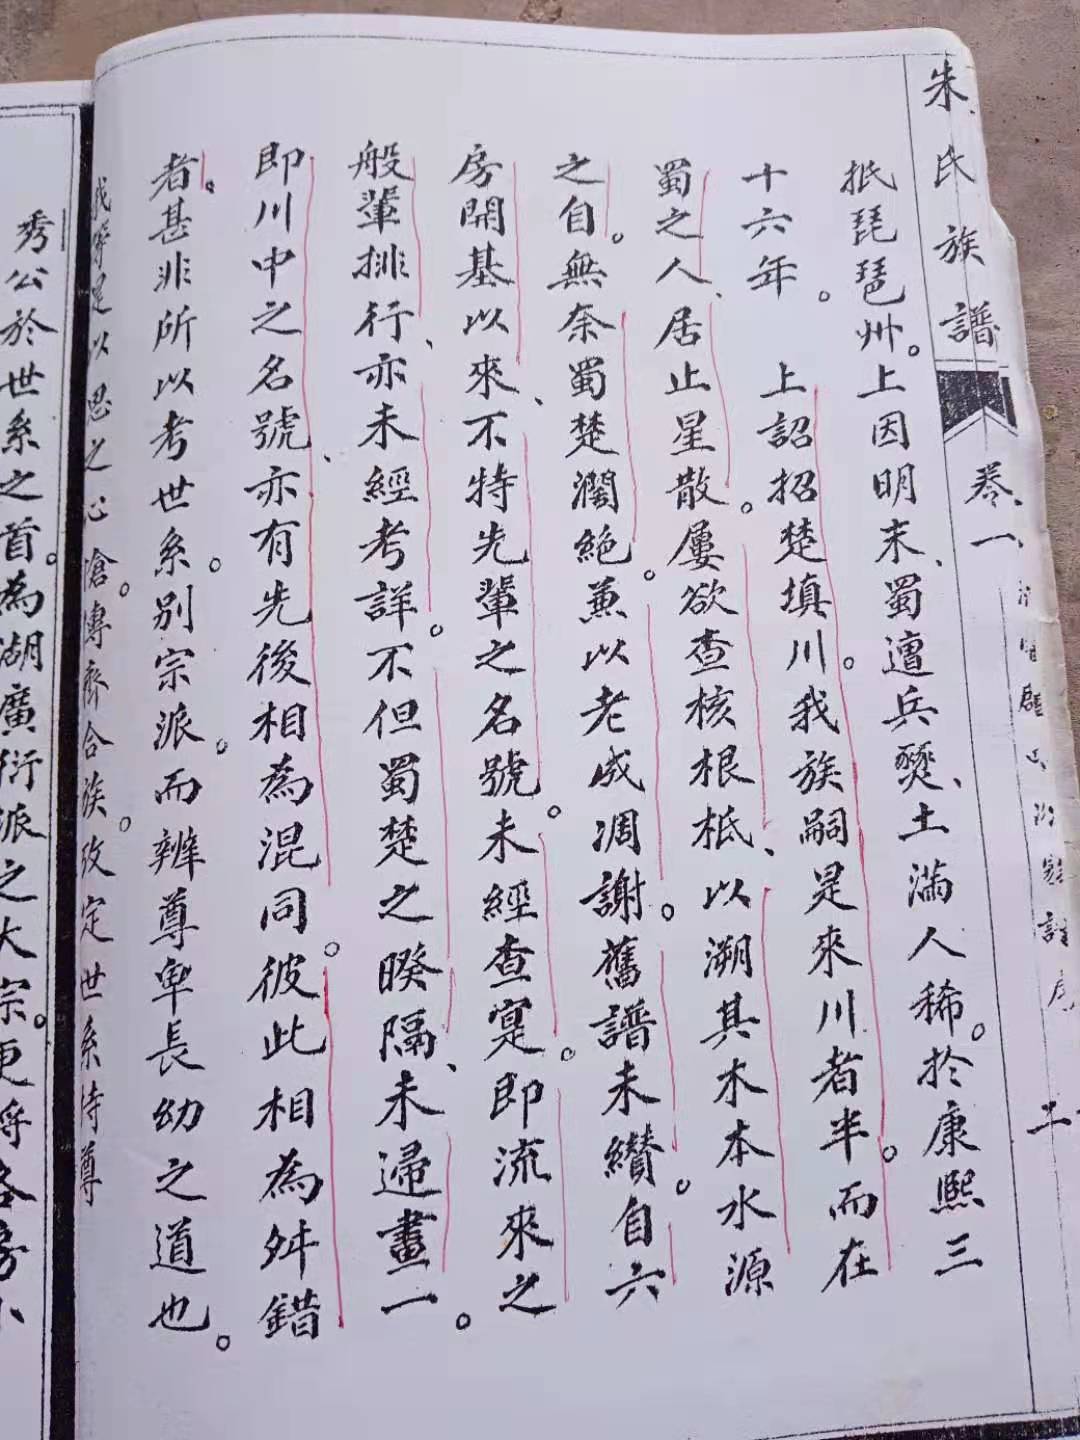 朱氏族譜
卷一
二
抵琵琶州。上因明末、蜀遭兵燹、土滿人稀。於康熙三
十六年。 上詔招楚填川。我族嗣是來川者半。而在
蜀之人、居止星散。屢欲查核根柢、以溯其木本水源
之自。無奈蜀楚濶絕。兼以老成凋謝。舊譜未纘。自六
房開基以來、不特先輩之名號。未經查寔。即流來之
般輩排行、亦未經考詳。不但蜀楚之暌隔、未歸畫一。
即川中之名號、亦有先後相為混同。彼此相為舛錯
者。甚非所以考世系。別宗派。而辨尊卑長幼之道也。
以思之心愴。傳齊合族。攷定世系
秀公於世系之首。為湖廣衍派之大宗。更將各房